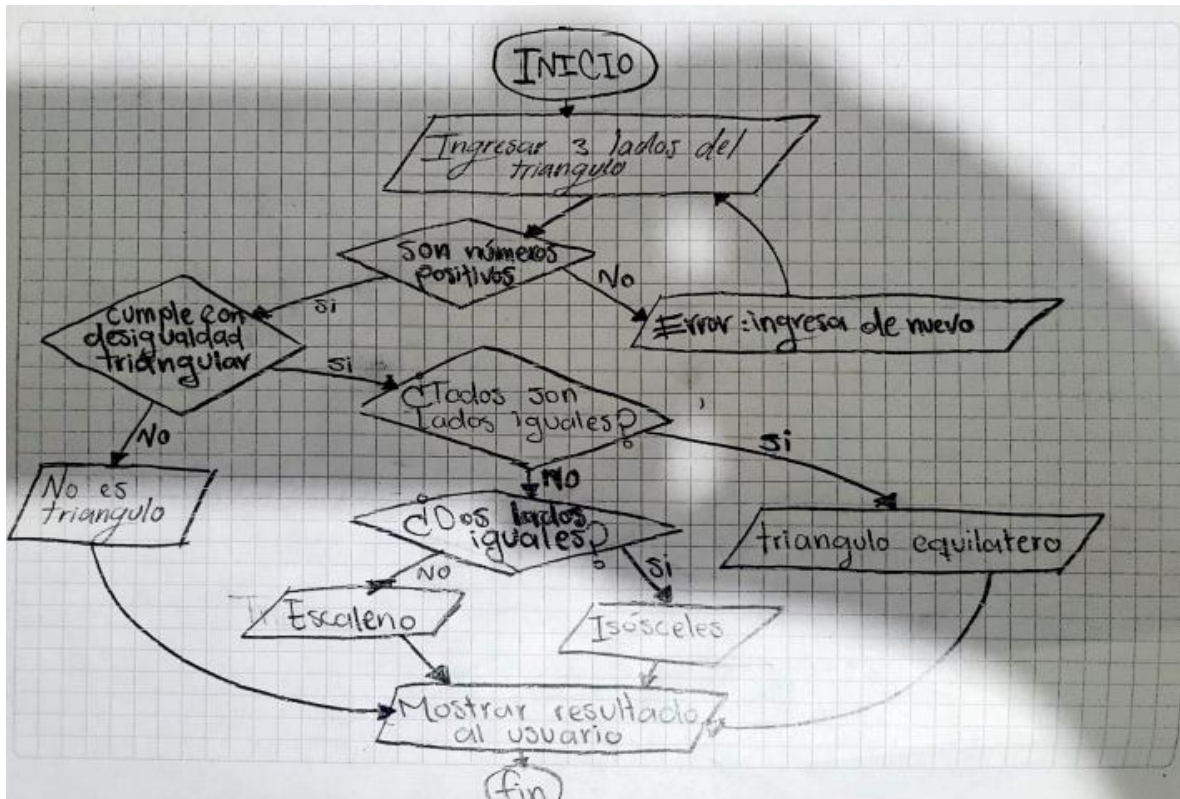 INICIO
Ingresar 3 lados del
triangulo
son números
positivos
No
si
Error: ingresa de nuevo
cumple con
desigualdad
triangular
si
No
No es
triangulo
¿Todos son
lados iguales?
si
NO
¿Dos lados
iguales?
NO
si
triangulo equilatero
Escaleno
Isósceles
Mostrar resultado
al usuario
fin